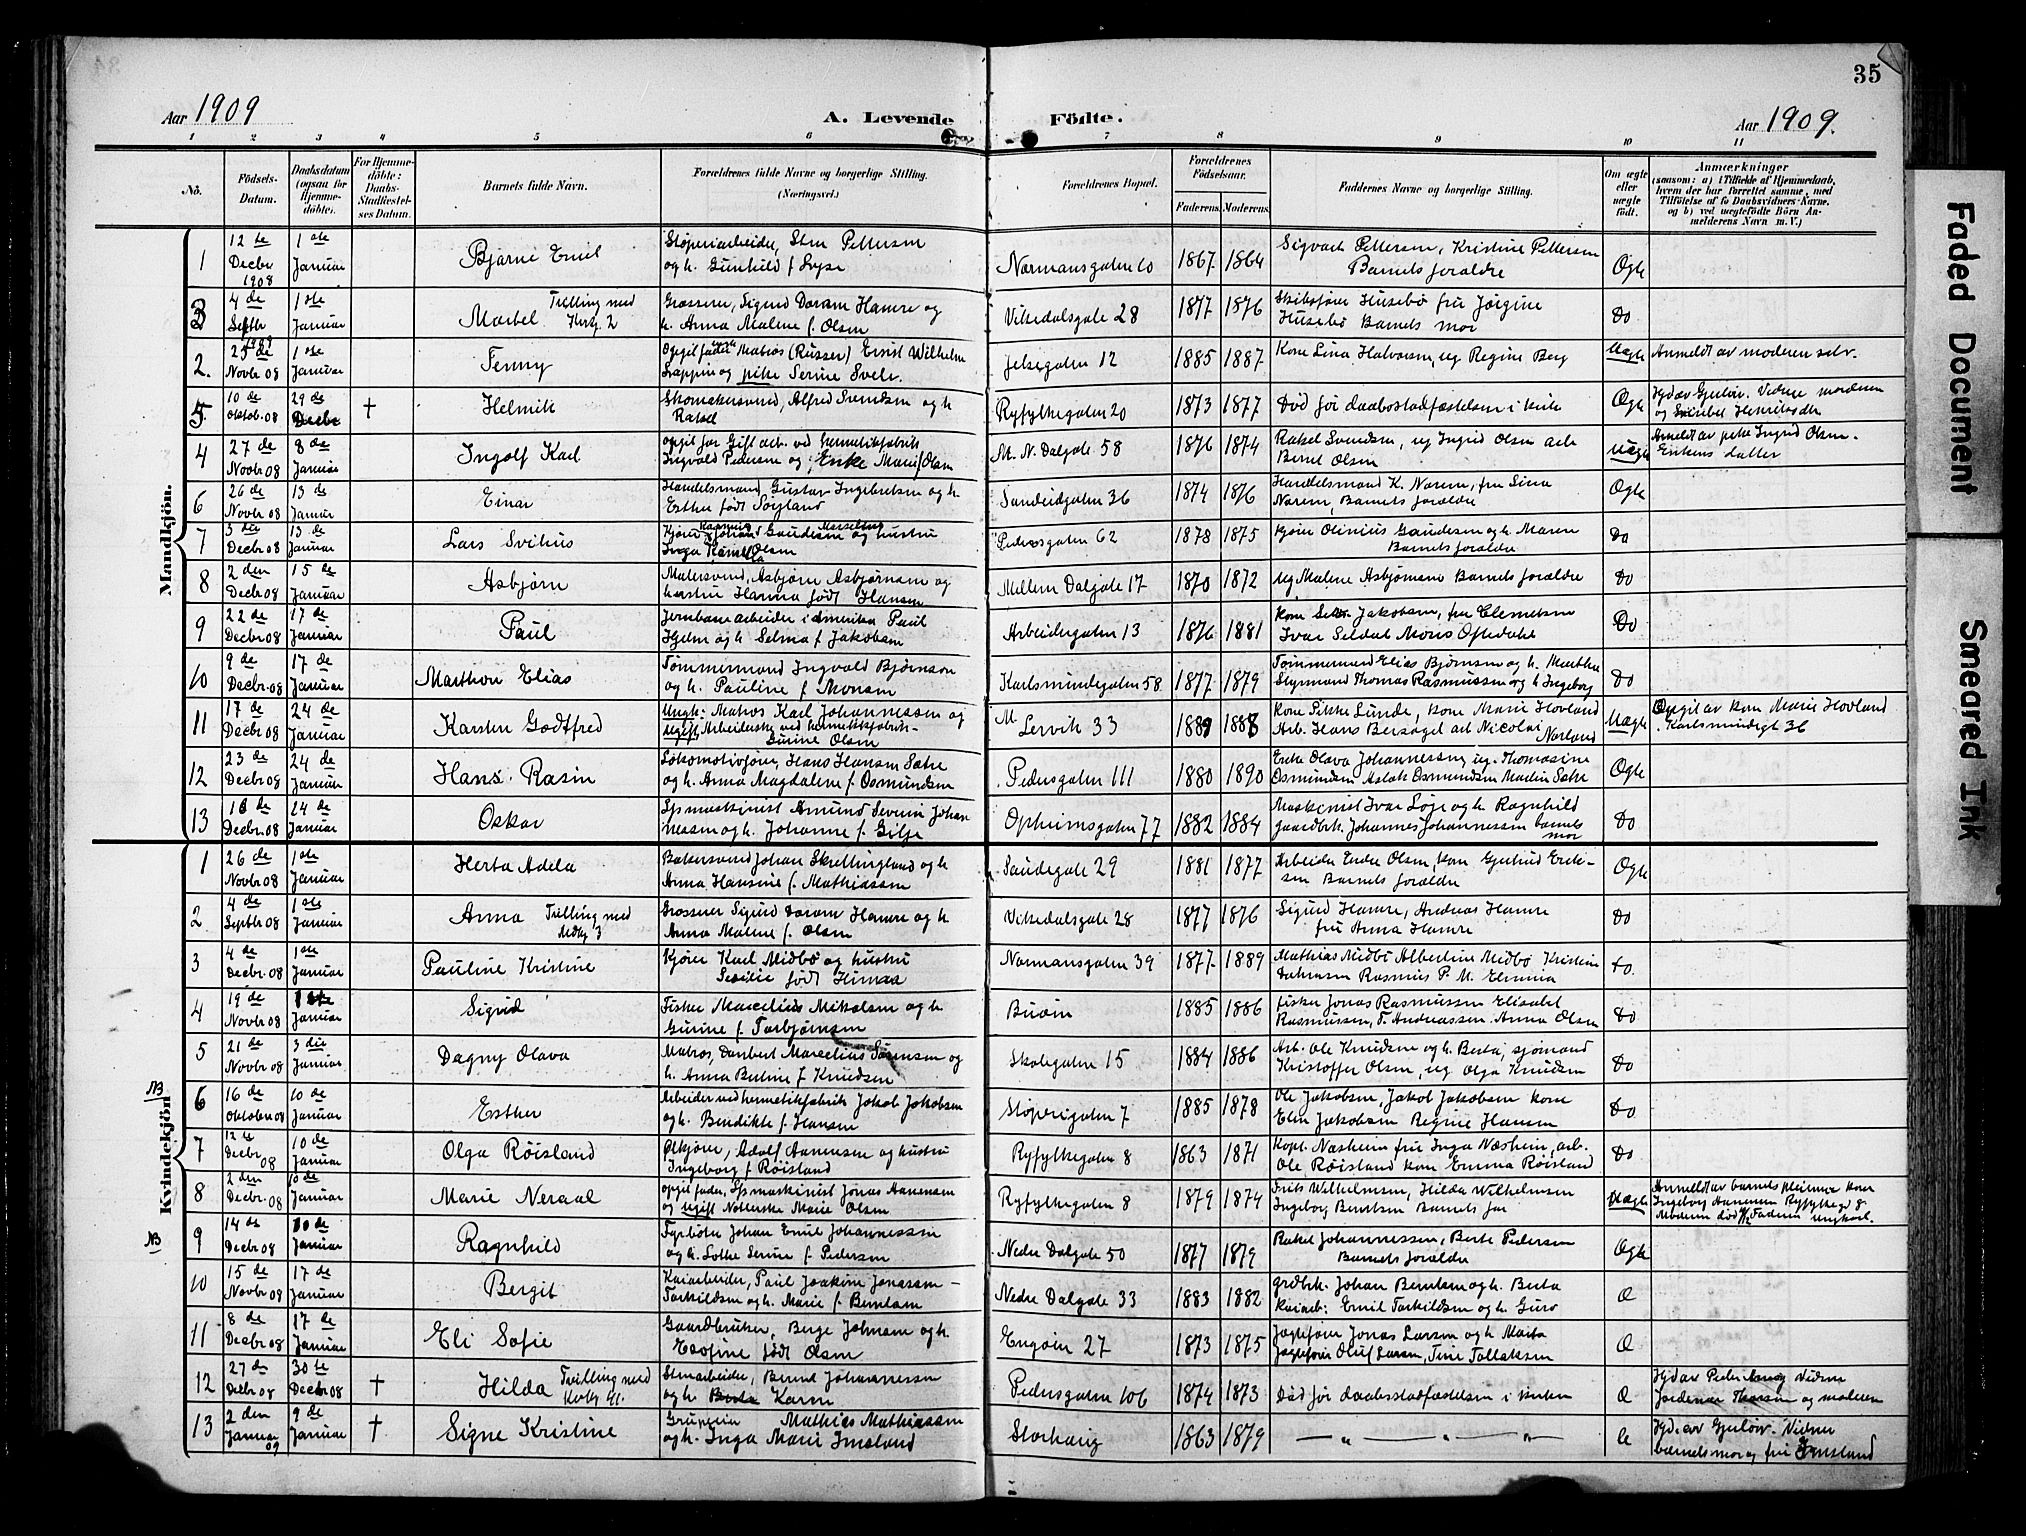 35
Aar 1909
A. Levende Födte.
Aar 1909.
1 2 3 4 5 6 7 8 9 10 11
No.
Födsels-Datum.
Daabsdatum (ogsaa for Hjemmedöbte).
For Hjemmedöbte: Daabs-Stadfæstelses Datum.
Barnets fulde Navn.
Forældrenes fulde Navne og borgerlige Stilling. (Næringsvei.)
Forældrenes Bopæl.
Forældrenes Födselsaar.
Faderens. Moderens.
Faddernes Navne og borgerlige Stilling.
Om ægte eller uægte födt.
Anmærkninger
(saasom: a) i Tilfælde af Hjemmedaab, hvem der har forrettet samme, med Tilföielse af to Daabsvidners Navne. og b) ved uægtefödte Börn Anmelderens Navn m. V.)
Mandkjön.
1 12te Decbr 1908 1ste Januar Bjarne Emil Støperiarbeider, Sten Pettersen og h. Gunhild f. Lyse Normansgaten 60 1867 1864 Sigvart Pettersen, Kristine Pettersen Barnets forældre Ægte
3 4de Septbr 1ste Januar Mabel Trilling med Kvkj. 2 Grosserer, Sigurd Doram Hamre og h. Anna Maline f. Olsen Vikedalsgate 28 1877 1876 Skibsfører Husebö fru Jørgine Husebö Barnets mor Do
2. Novbr 08 1ste Januar Fenny Opgit fader Matros (Russer) Ernst Wilhelm og pike Serine Jelsegaten 12 1885 1887 Kone Lina Halvorsen, ug Regine Berg Uægte Anmeldt av moderen selv.
5 10de Oktob. 08 29de Decbr † Helmik Skomakersvend, Alfred Svendsen og h. Rakel Ryfylkegaten 20 1873 1877 Død før daabsstadfæstelsen i kirke Ægte
4 27de Novbr 08 8de Januar Ingolf Karl opgit far Gift arb. ved hermetikfabrik Ingvald Pedersen og Enke Marie f. Olsen M. N. Dalgate 58 1876 1874 Rakel Svendsen, ug Ingrid Olsen arb Bernt Olsen Uægte Anmeldt av pike Ingrid Olsen. Enkens datter
6 26de Novbr 08 13de Januar Einar Handelsmand, Gustav Ingebretsen og h. Esther født Søyland Sandeidgaten 36 1874 1876 Handelsmand K. Norem, fru Lina Norem, Barnets forældre Ægte
7 3die Decbr 08 13de Januar Lars Svihus Kjører Rasmus Johan Gaudesen og hustru Inga Olsen Pedersgaten 62 1878 1875 Kjører Olinius Gaudesen og h. Maren Barnets forældre Do
8 2den Decbr 08 15de Januar Asbjørn Malersvend, Asbjørn Asbjørnsen og hustru Hanna født Hansen Mellem Dalgate 17 1870 1872 ug Malene Asbjørnsen Barnets forældre Do
9 22de Decbr 08 17de Januar Paul Jernbanearbeider i Amerika Paul Hjelm og h. Selma f. Jakobsen Arbeidergaten 13 1876 1881 Kone Jakobsen, fru Clemetsen Ivar Seldal Mons Oftedal Do
10 9de Decbr 08 17de Januar Marthon Elias Tømmermand Ingvald Bjørnson og h. Pauline f. Monsen Karlsmindegaten 58 1877 1879 Tømmermand Elias Bjørnsen og h. Marthe Styrmand Thomas Rasmussen og h Ingeborg Do
11 17de Decbr 08 24de Januar Karsten Godtfred Ungk: Matros Karl Johannessen og ugift Arbeiderske ved hermetikfabrik Gurine Olsen M Lervik 33 1889 1888 Kone Pikke Lunde, Kone Marie Hovland Arb. Hans Bersagel arb Nicolai Norland Uægte Opgit av kone Marie Hovland Karlsmindegt 36
12 23de Decbr 08 24de Januar Hans Rasin Lokomotivfører, Hans Hansen Sætre og h. Anna Magdalene f. Osmundsen Pedersgaten 111 1880 1890 Enke Olava Johannessen ug. Thomasine Osmundsen Aslak Osmundsen Martin Sætre Ægte
13 18de Decbr 08 24de Januar Oskar Maskinist Amund Severin Johannessen og h. Johanne f. Gilje Opheimsgaten 77 1882 1884 Maskinist Ivar og h. Ragnhild gaardbrk. Johannes Johannessen barnets mor Do
Kvindekjön
1 26de Novbr 08 1ste Januar Herta Adela Bakersvend Johan Skrettingland og h Anna Hansine f. Mathiassen Saudegate 29 1881 1877 Arbeider Endre Olsen, kone Gjertrud Eriksen Barnets forældre Ægte
2 4de Septbr 08 1ste Januar Anna Trilling med Mdkj 3 Grosserer Sigurd Doram Hamre og h. Anna Maline f. Olsen Vikedalsgate 28 1877 1876 Sigurd Hamre, Andreas Hamre fru Anna Hamre Do
3 4de Decbr 08 1ste Januar Pauline Kristine Kjører Karl Midbö og hustru Sesilie født Normansgaten 39 1877 1889 Mathias Midbö Albertine Midbö Kristine Johnsen Rasmus P. M. Do.
4 19de Novbr 08 Januar Sigrid Fisker Marcelius Mikalsen og h. Gurine f. Torbjørnsen Buøin 1885 1886 Fisker Jonas Rasmussen Elisabet Rasmussen, T. Andreassen Anna Olsen Do
5 21de Novbr 08 3die Januar Dagny Olava Matros, Danbert Marcelius Sørensen og h. Anna Bertine f Knudsen Skolegaten 15 1884 1886 Arb. Ole Knudsen og h. Berta, sjømand Kristoffer Olsen, ug Olga Knudsen Do
NB
6 16de Oktober 08 10de Januar Esther Arbeider ved hermetikfabrik Jakob Jakobsen og h. Bendikte f. Hansen Støperigaten 7 1885 1878 Ole Jakobsen, Jakob Jakobsen kone Elin Jakobsen Regine Hansen Do
7 12te Decbr 08 10de Januar Olga Røisland Ølkjører, Adolf Aanensen og hustru Ingeborg f. Røisland Ryfylkegaten 8 1863 1871 Kapt. Næsheim fru Inga Næsheim, arb. Ole Røisland kone Emma Røisland Do
8 2den Decbr 08 10de Januar Marie Neraal opgit fader, maskinist Jonas Aanensen og ugift Marie Olsen Ryfylkegaten 8 1879 1874 Frits Wilhelmsen, Hilda Wilhelmsen Ingeborg Berntsen Barnets far Uægte Anmeldt av barnets pleiemor kone Ingeborg Aanensen Ryfylkegt 8 Moderen død Faderen ungkarl.
NB
9 14de Decbr 08 10de Januar Ragnhild Fyrbøter Johan Emil Johannessen og h. Lotte Serine f. Pedersen Nedre Dalgate 50 1877 1879 Rakel Johannessen, Berte Pedersen Barnets forældre Ægte
10 15de Novbr 08 17de Januar Bergit Kaiarbeider, Paul Joakim Jonassen Torkildsen og h. Marie f. Berntsen Nedre Dalgate 33 1883 1882 grdbrk. Johan Berntsen og h. Berta Kaiarb: Emil Torkildsen og h. Guro Æ
11 8de Decbr 08 17de Januar Eli Sofie Gaardbruker, Berge Johnsen og h. født Olsen Engøin 27 1873 1875 Jonas Larsen og h. Marta Oluf Larsen, Tine Tollaksen Æ
12 27de Decbr 08 30te Decbr 08 † Hilda Tvilling med Stenarbeider, Bernt Johannessen og h. Karen Pedersgaten 106 1874 1873 Død før daabsstadfæstelsen i kirken Æ
13 2den Januar 09 9de Januar † Signe Kristine Mathias Mathiassen og h. Inga Marie Imsland Storhaug 1863 1879 — „ — „ — „ Æ Hjdøv Gjerløv. Vidner barnets mor og fru Imsland
Faded Document
Smeared Ink